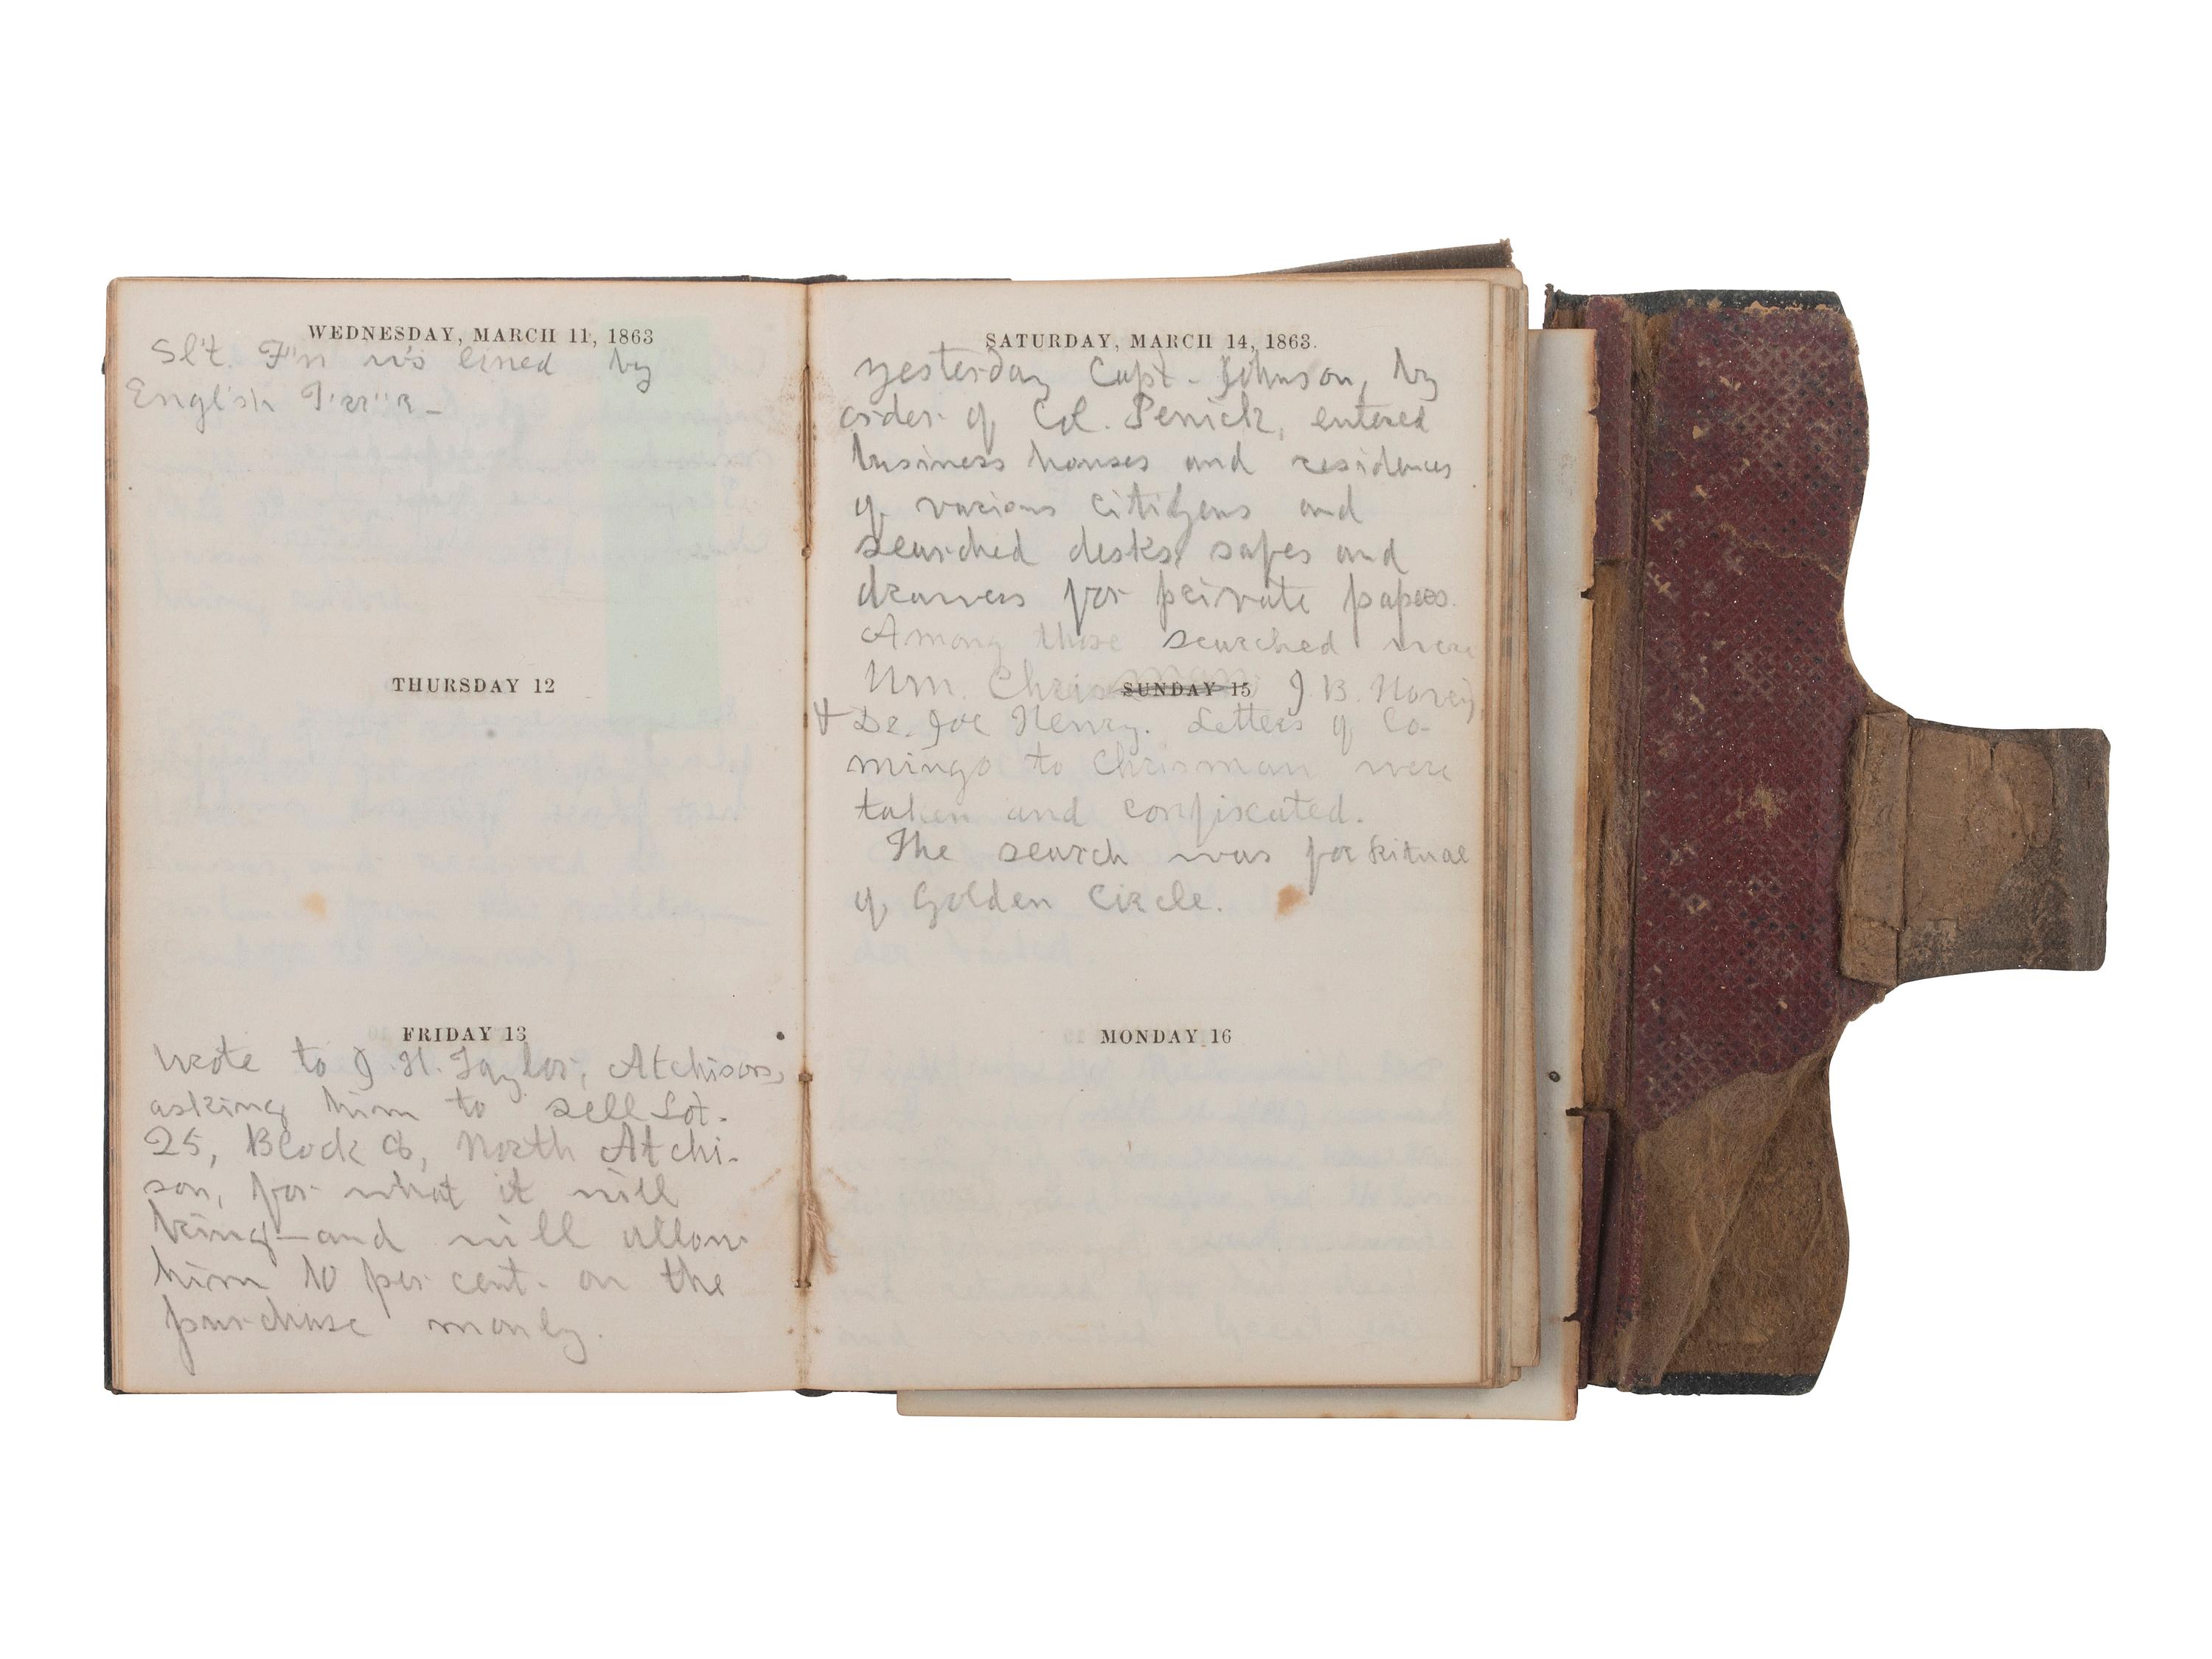 WEDNESDAY, MARCH 11, 1863
Sl't. F"n w's lined by
English
THURSDAY 12
FRIDAY 13
Wrote to J. H. Taylor, Atchison,
asking him to sell Lot
25, Block 8, North Atchi-
son, for what it will
bring—and will allow
him 10 per cent. on the
purchase money.
SATURDAY, MARCH 14, 1863.
yesterday Capt. Johnson, by
order of Col. Penick, entered
business houses and residences
of various citizens and
searched desks, safes and
drawers for private papers.
Among those searched were
Wm. Chrisman J B. Hovey,
SUNDAY 15
+ Dr. Joe Henry. Letters of Co-
mingo to Chrisman were
taken and confiscated.
The search was for Ritual
of Golden Circle.
MONDAY 16